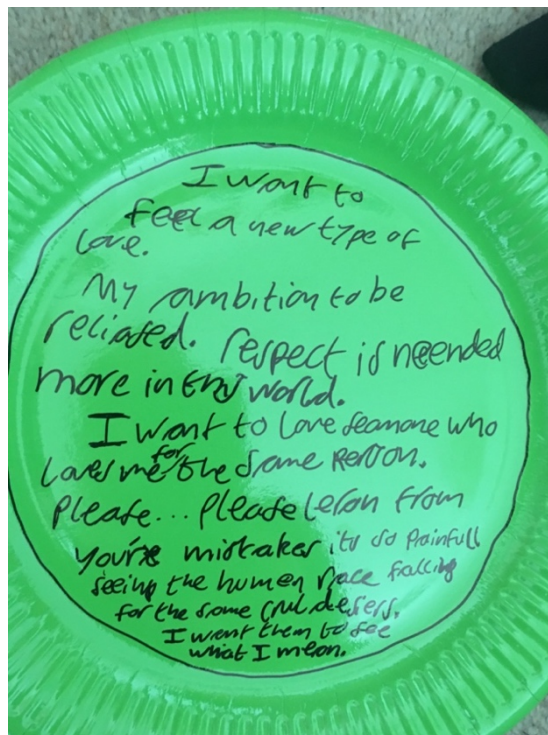 I want to
feel a new type of
love.
My ambition to be
reliased. respect is neended
more in this world.
I want to love seamone who
loves me for the same Reason.
Please... Please leran from
you're mistakes it's so Painfull
seeing the human race falling
for the same
I want them to see
what I mean.